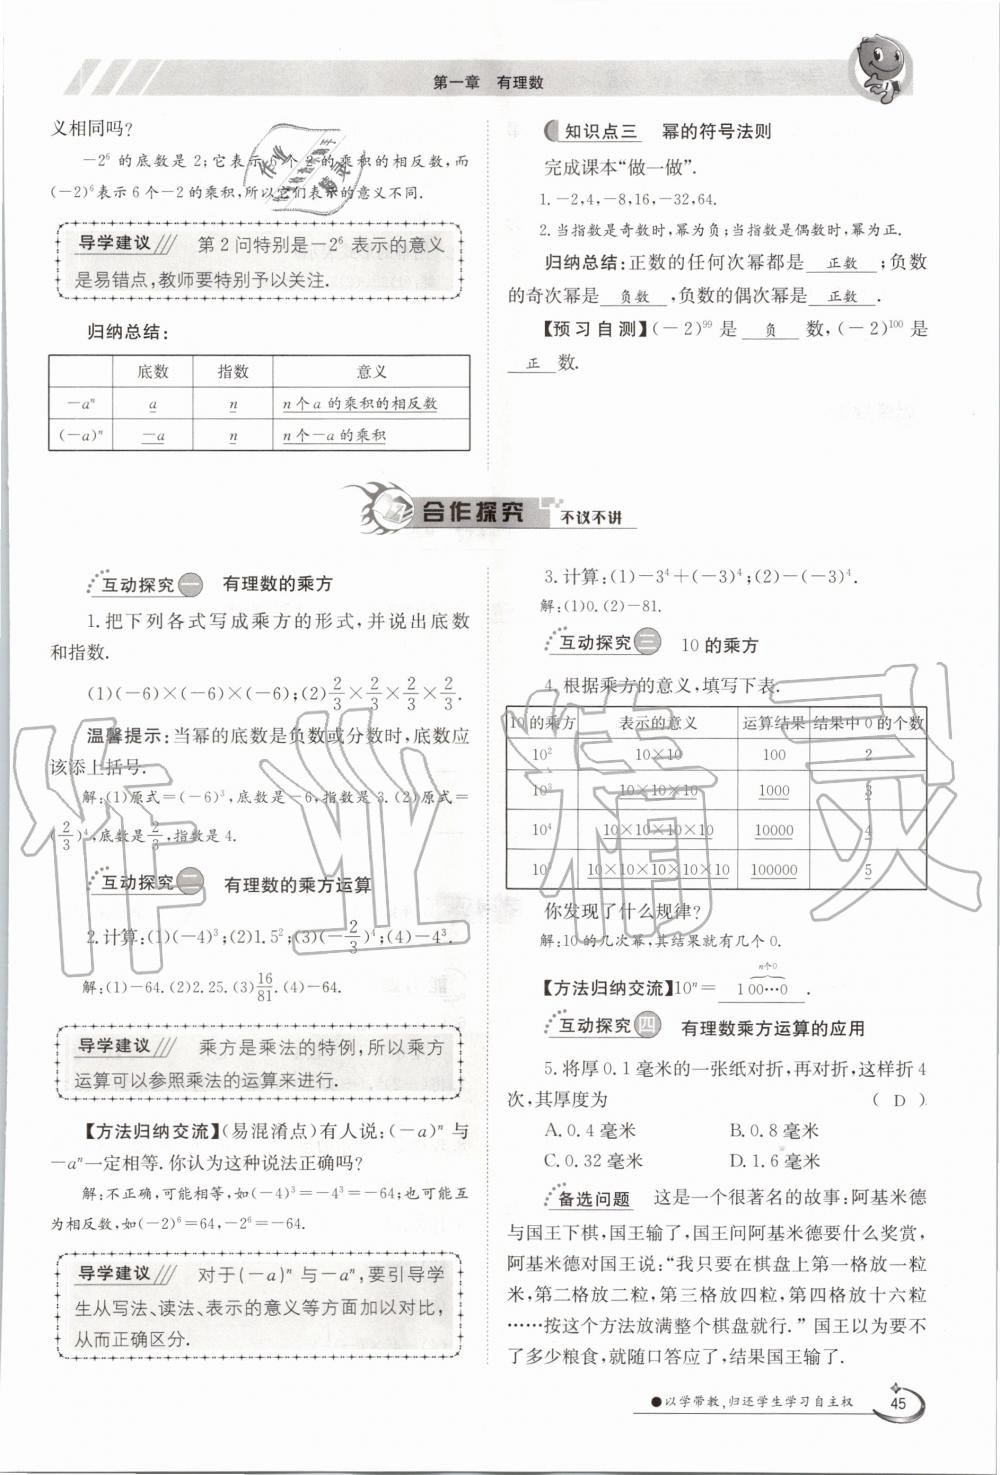 第一章 有理数
义相同吗?
－2⁶ 的底数是 2;它表示 6 个 2 的乘积的相反数,而
(－2)⁶ 表示 6 个－2 的乘积,所以它们表示的意义不同.
导学建议 第 2 问特别是－2⁶ 表示的意义
是易错点,教师要特别予以关注.
归纳总结:
底数 指数 意义
－aⁿ a n n 个 a 的乘积的相反数
(－a)ⁿ －a n n 个－a 的乘积
知识点三 幂的符号法则
完成课本“做一做”.
1. －2,4,－8,16,－32,64.
2. 当指数是奇数时,幂为负;当指数是偶数时,幂为正.
归纳总结:正数的任何次幂都是 正数 ;负数
的奇次幂是 负数 ,负数的偶次幂是 正数 .
【预习自测】(－2)⁹⁹ 是 负 数,(－2)¹⁰⁰ 是
正 数.
合作探究 不议不讲
互动探究一 有理数的乘方
1. 把下列各式写成乘方的形式,并说出底数
和指数.
(1)(－6)×(－6)×(－6);(2)2/3×2/3×2/3×2/3.
温馨提示:当幂的底数是负数或分数时,底数应
该添上括号.
解:(1)原式=(－6)³,底数是－6,指数是 3. (2)原式=
(2/3)⁴,底数是2/3,指数是 4.
互动探究二 有理数的乘方运算
2. 计算:(1)(－4)³;(2)1.5²;(3)(－2/3)⁴;(4)－4³.
解:(1)－64. (2)2.25. (3)16/81. (4)－64.
导学建议 乘方是乘法的特例,所以乘方
运算可以参照乘法的运算来进行.
【方法归纳交流】(易混淆点)有人说:(－a)ⁿ 与
－aⁿ一定相等.你认为这种说法正确吗?
解:不正确,可能相等,如(－4)³=－4³=－64;也可能互
为相反数,如(－2)⁶=64,－2⁶=－64.
导学建议 对于(－a)ⁿ 与－aⁿ,要引导学
生从写法、读法、表示的意义等方面加以对比,
从而正确区分.
3. 计算:(1)－3⁴＋(－3)⁴;(2)－(－3)⁴.
解:(1)0. (2)－81.
互动探究三 10 的乘方
4. 根据乘方的意义,填写下表.
10 的乘方 表示的意义 运算结果 结果中 0 的个数
10² 10×10 100 2
10³ 10×10×10 1000 3
10⁴ 10×10×10×10 10000 4
10⁵ 10×10×10×10×10 100000 5
你发现了什么规律?
解:10 的几次幂,其结果就有几个 0.
n个0
【方法归纳交流】10ⁿ= 1 00…0 .
互动探究四 有理数乘方运算的应用
5. 将厚 0.1 毫米的一张纸对折,再对折,这样折 4
次,其厚度为 ( D )
A. 0.4 毫米 B. 0.8 毫米
C. 0.32 毫米 D. 1.6 毫米
备选问题 这是一个很著名的故事:阿基米德
与国王下棋,国王输了,国王问阿基米德要什么奖赏,
阿基米德对国王说:“我只要在棋盘上第一格放一粒
米,第二格放二粒,第三格放四粒,第四格放十六粒
……按这个方法放满整个棋盘就行.”国王以为要不
了多少粮食,就随口答应了,结果国王输了.
●以学带教,归还学生学习自主权 45
作业精灵